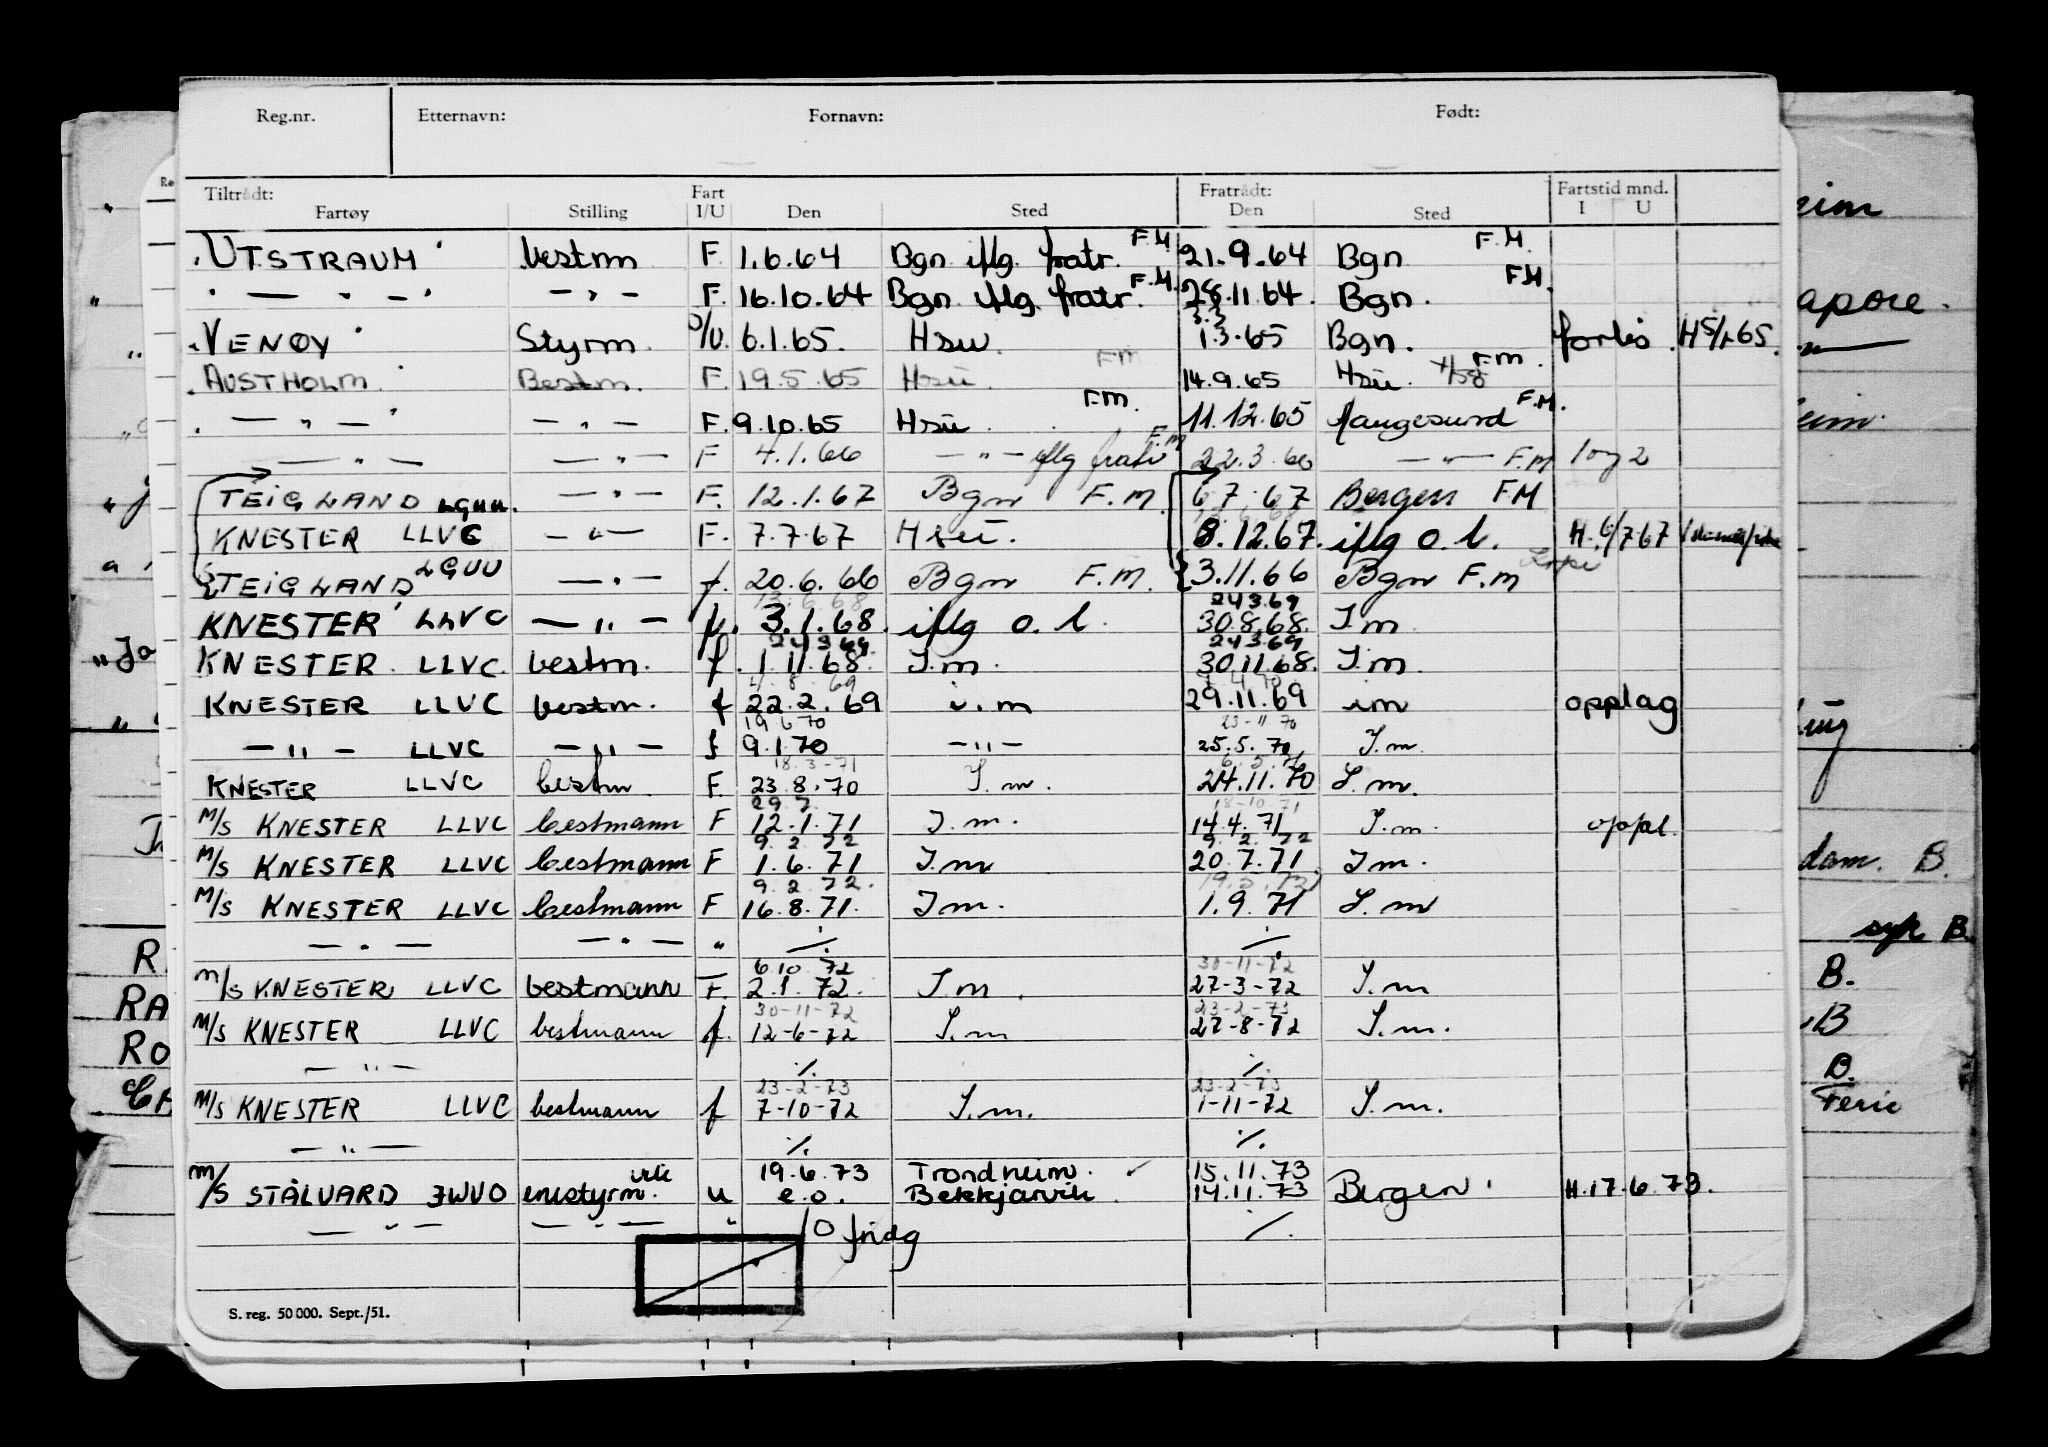 Reg.nr. Etternavn: Fornavn: Født:
Tiltrådt: Fart Fratrådt: Fartstid mnd.
Fartøy Stilling I/U Den Sted Den Sted I U
"UTSTRAUM" bestm F. 1.6.64 Bgn iflg. fratr. F.M. 21.9.64 Bgn F.M.
" — " — " — " — F. 16.10.64 Bgn iflg. fratr. F.M. 28.11.64. Bgn. F.M.
3.3
"VENØY" Styrm. 6.1.65. Hsu. 1.3.65 Bgn. forlis
"AUSTHOLM" Bestm. F. 19.5.65 Hsu. FM 14.9.65 Hsu. F.M.
" — " — " — " — F. 9.10.65 Hsu. F.M. 11.12.65 Haugesund F.M.
— " — — " — F 4.1.66 — " — iflg fratr F.M 22.3.66 — " — F.M log 2
TEIGLAND LGUU. — " — F. 12.1.67 Bgn F.M. 6 7.67 Bergen FM
KNESTER LLVC — " — F. 7.7.67 Hsu. 8.12.67. iflg o.l. H. 6/7 67
TEIGLAND LGUU — " — f. 20.6.66 Bgn F.M. 3.11.66 Bgn F.M
13.6.68 24369
KNESTER LLVC — " — f. 3.1.68. iflg o.l. 30.8.68. I.m
24369 24369
KNESTER. LLVC. bestm. f. 1.11.68. I.m. 30.11.68. I.m
4.8.69
KNESTER LLVC bestm. f 22.2.69 i.m 29.11.69 im opplag
19 6 70 23-11 70
— " — LLVC — " — f 9.1.70 — " — 25.5.70 I.m.
18.3-71
KNESTER LLVC bestm F. 23.8.70 I.m. 24.11.70 I.m.
29.7 18-10.71
M/S KNESTER LLVC bestmann F 12.1.71 I.m. 14.4.71 I.m. oppl.
9.2.72 9.2.72
M/S KNESTER LLVC bestmann F 1.6.71 I.m 20.7.71. I.m.
9.2.72.
M/S KNESTER LLVC bestmann F 16.8.71. I.m. 1.9.71 I.m
— " — — " — " ·/. ·/.
6.10.72 30-11-72
M/S KNESTER LLVC bestmann F. 2.1.72. I.m. 27-3-72 I.m
30-11-72 23-2-73
M/S KNESTER LLVC bestmann f. 12-6-72 I.m 27-8-72 I.m.
— " — ·/. ·/.
23-2-73 23-2-73
M/S KNESTER LLVC bestmann f 7-10-72 I.m. 1-11-72 I.m.
— " — ·/. ·/.
19.6.73 Trondheim. 15.11.73
M/S STÅLVARD JWVO enestyrm. u e.o. Bekkjarvik 14.11.73 Bergen. H.17.6.73.
— " — — " — " 10 fridg ·/.
S. reg. 50 000. Sept./51.
apore.
dam. B.
syk B.
R
B.
RA
B
RO
B.
Ferie